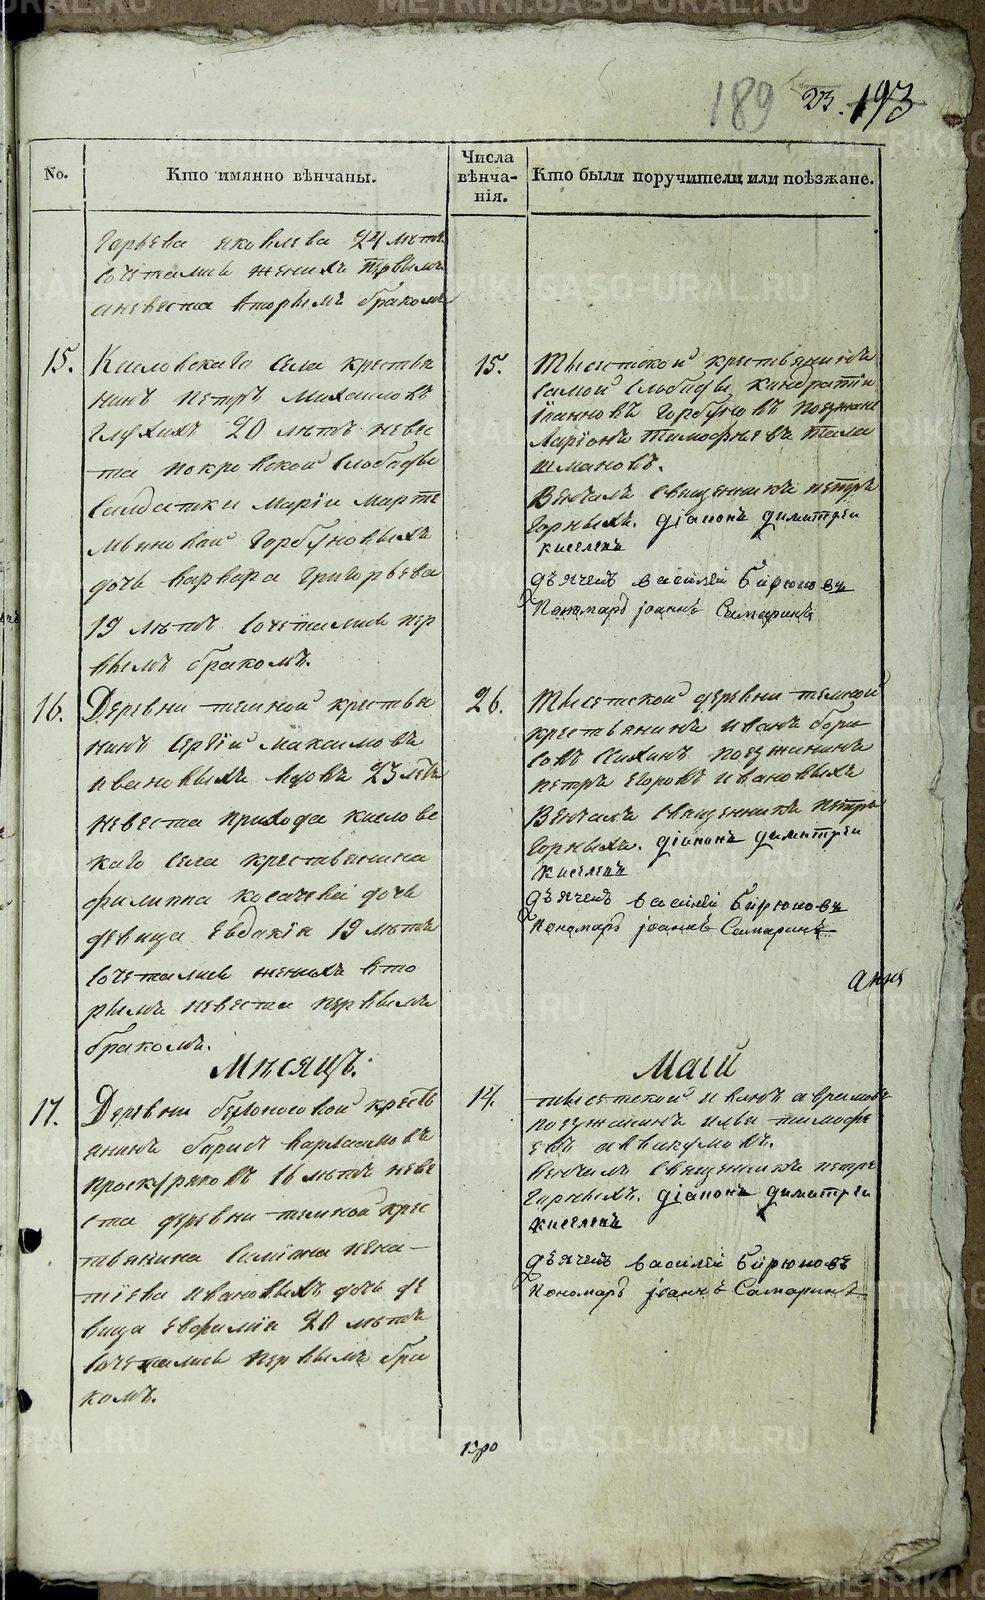 189 23. 193
No.
Кто имянно вѣнчаны.
Числа
вѣнча-
нія.
Кто были поручители или поѣзжане.
яковлева 24 лѣтъ
сочетались женихъ первымъ
аневеста вторымъ бракомъ
15. Кисловскаго села крестья
нинъ петръ михаиловъ
глухихъ 20 лѣтъ неве
ста покровской слободы
салдатки маріи мартѣ
мьяновой горбуновыхъ
дочь варвара григорьева
19 лѣтъ сочетались пер
вымъ бракомъ.
15. крестьянинъ
самой слободы кандратіи
іванновъ горбуновъ поезжане
ларіонъ тимофѣевъ
Венчалъ священникъ петръ
горныхъ. діаконъ димитреи
киселевъ
дьячекъ василей бирюковъ
Пономарь іоаннъ Самаринъ
16. Деревни темной крестья
нинъ сергій максимовъ
ивановыхъ вдовъ 23 лѣтъ
невеста прихода кислове
каго села крестьянина
филиппа косачева дочь
девица евдакія 19 лѣтъ
сочетались женихъ вто
рымъ невеста первымъ
бракомъ.
26. деревни темной
крестьянинъ иванъ бори
совъ поезжанинъ
петръ егоровъ ивановыхъ
Венчалъ священникъ петръ
горныхъ. діаконъ димитреи
киселевъ
дьячекъ василей бирюковъ
Пономарь іоаннъ Самаринъ
Мѣсяцъ. Маій
17. Деревни белоносовой кресть
янинъ борисъ варласмовъ
проскуряковъ 16 лѣтъ неве
ста деревни темной крес
тьянина
ивановыхъ дочь де
вица евфимія 20 лѣтъ
сочетались первымъ бра
комъ.
14.
поезжанинъ илья тимофе
евъ аввакумовъ.
венчалъ священникъ петръ
горныхъ. діаконъ димитреи
киселевъ
дьячекъ василей бирюковъ
Пономарь іоаннъ Самаринъ
METRIKI.GASO-URAL.RU